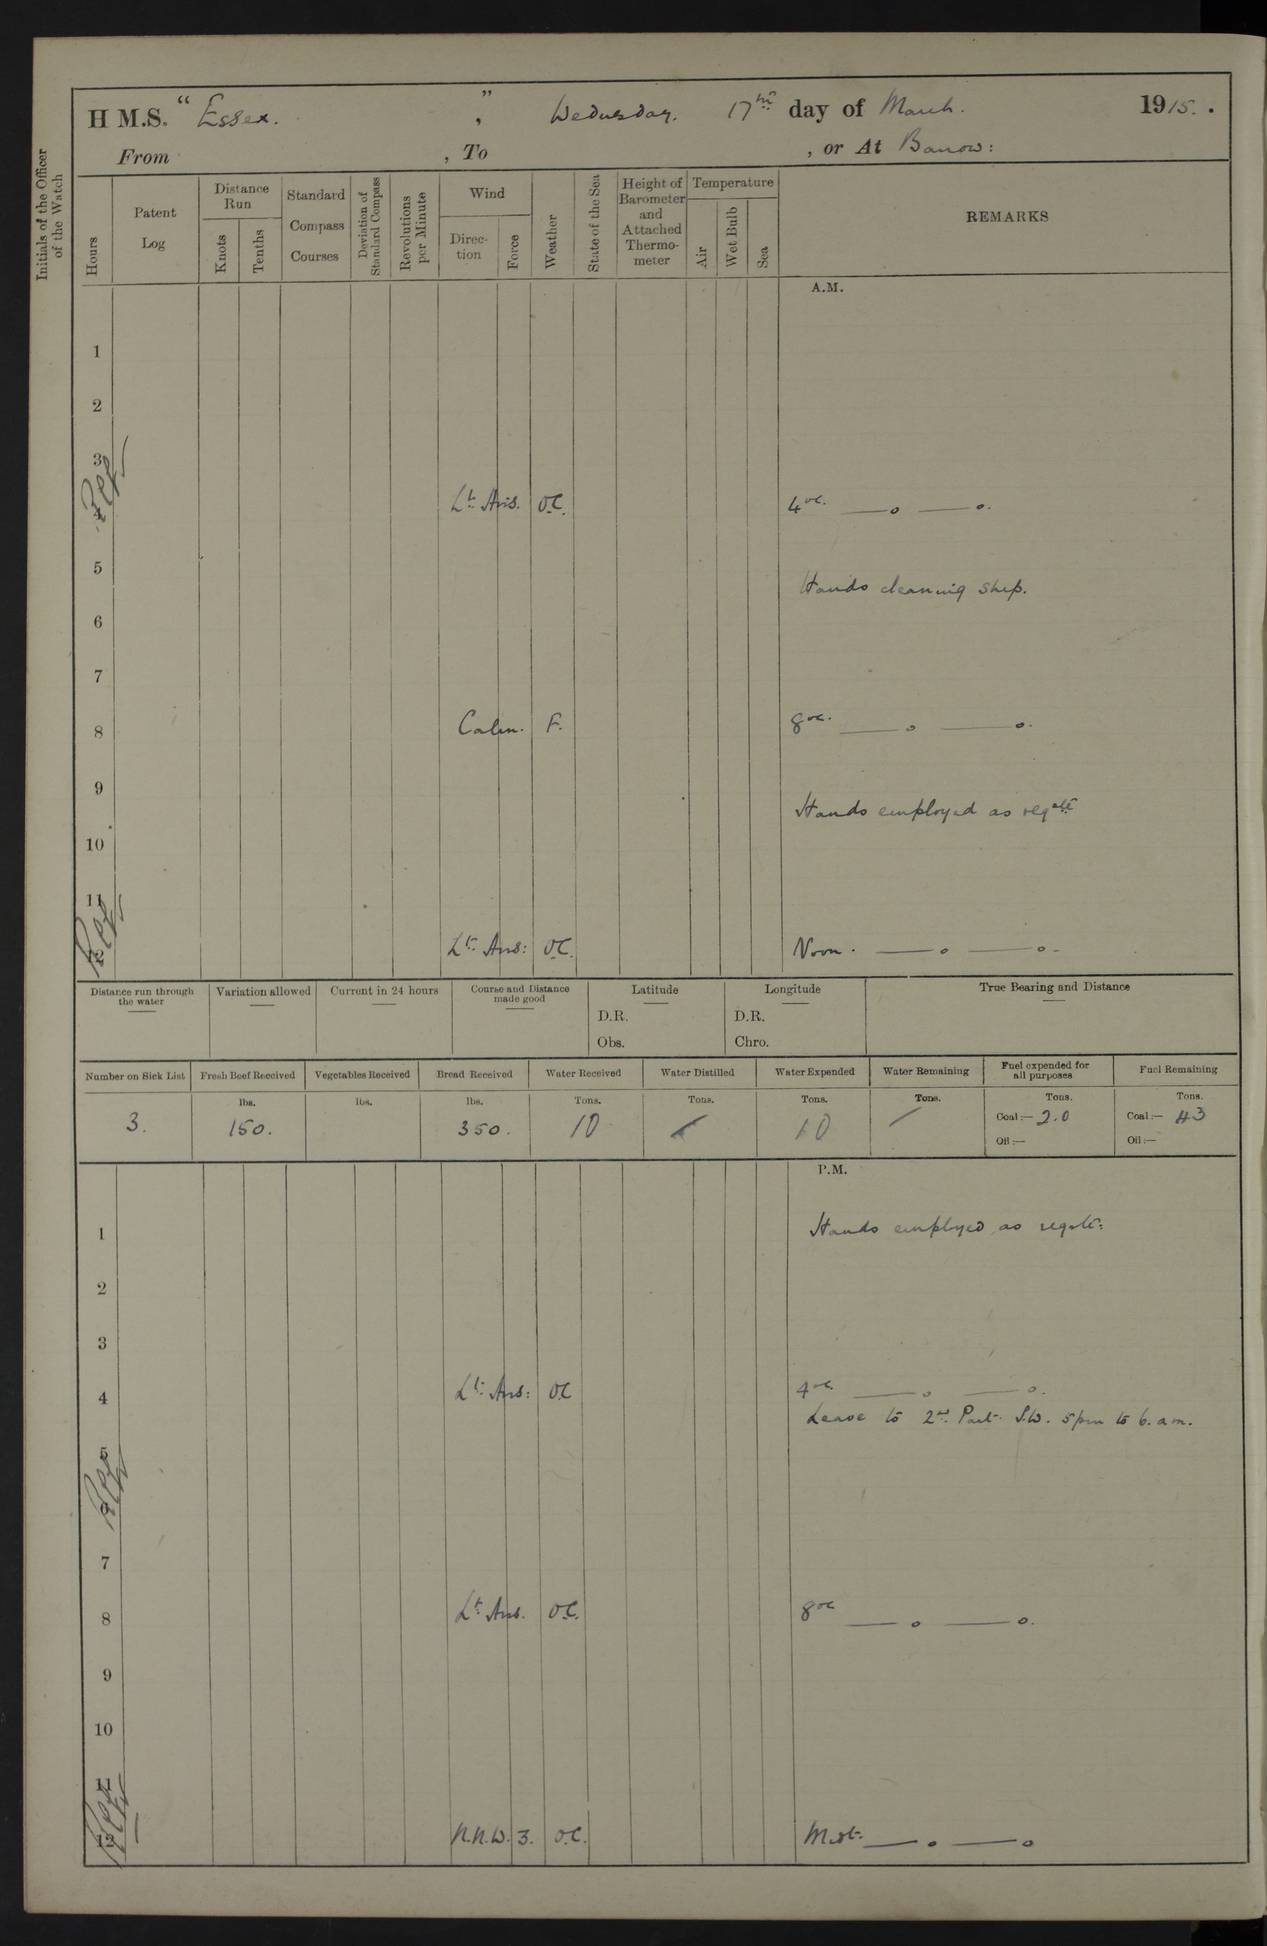 H M.S. "Essex.", Wednesday. 17th day of March. 1915.
From , To , or At Barrow:
Initials of the Officer of the Watch
Hours
Patent Log
Distance Run
Knots
Tenths
Standard Compass Courses
Deviation of Standard Compass
Revolutions per Minute
Wind
Direction
Force
Weather
State of the Sea
Height of Barometer and Attached Thermometer
Temperature
Air
Wet Bulb
Sea
REMARKS
A.M.
1
2
3
4 Lt. Airs. O.C. 4oc. —o —o.
5 Hands cleaning ship.
6
7
8 Calm. F. 8oc. —o —o.
9 Hands employed as reqste
10
11
12 Lt. Airs: O.C. Noon. —o —o-
Distance run through the water
Variation allowed
Current in 24 hours
Course and Distance made good
Latitude
D.R.
Obs.
Longitude
D.R.
Chro.
True Bearing and Distance
Number on Sick List
Fresh Beef Received
Vegetables Received
Bread Received
Water Received
Water Distilled
Water Expended
Water Remaining
Fuel expended for all purposes
Fuel Remaining
lbs. lbs. lbs. Tons. Tons. Tons. Tons. Tons. Tons.
3. 150. 350. 10 10 Coal:— 20 Coal:— 43
Oil:— Oil:—
P.M.
1 Hands employed as reqste:
2
3
4 Lt. Airs: O.C 4oc. —o —o.
Leave to 2nd Part S.W. 5pm to 6.am.
5
6
7
8 Lt. Airs. O.C. 8oc —o —o.
9
10
11
12 N.N.W. 3. O.C. Midt. —o —o